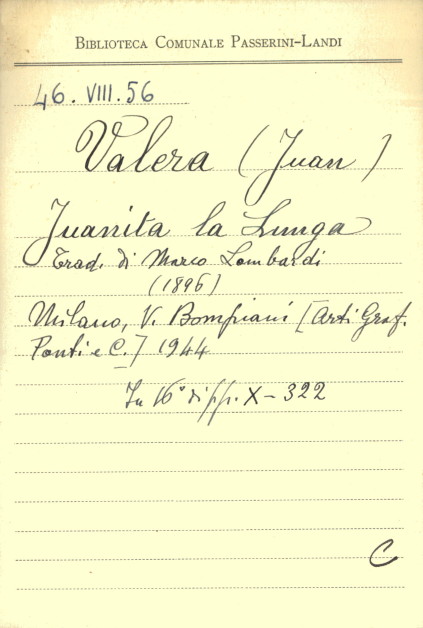 BIBLIOTECA COMUNALE PASSERINI-LANDI
46. VIII. 56
Valera (Juan)
Juanita la Lunga
Trad. di Marco Lombardi
(1896)
Milano, V. Bompiani [Arti Graf.
Ponti e C.] 1944
In 16° di pp. X-322
C